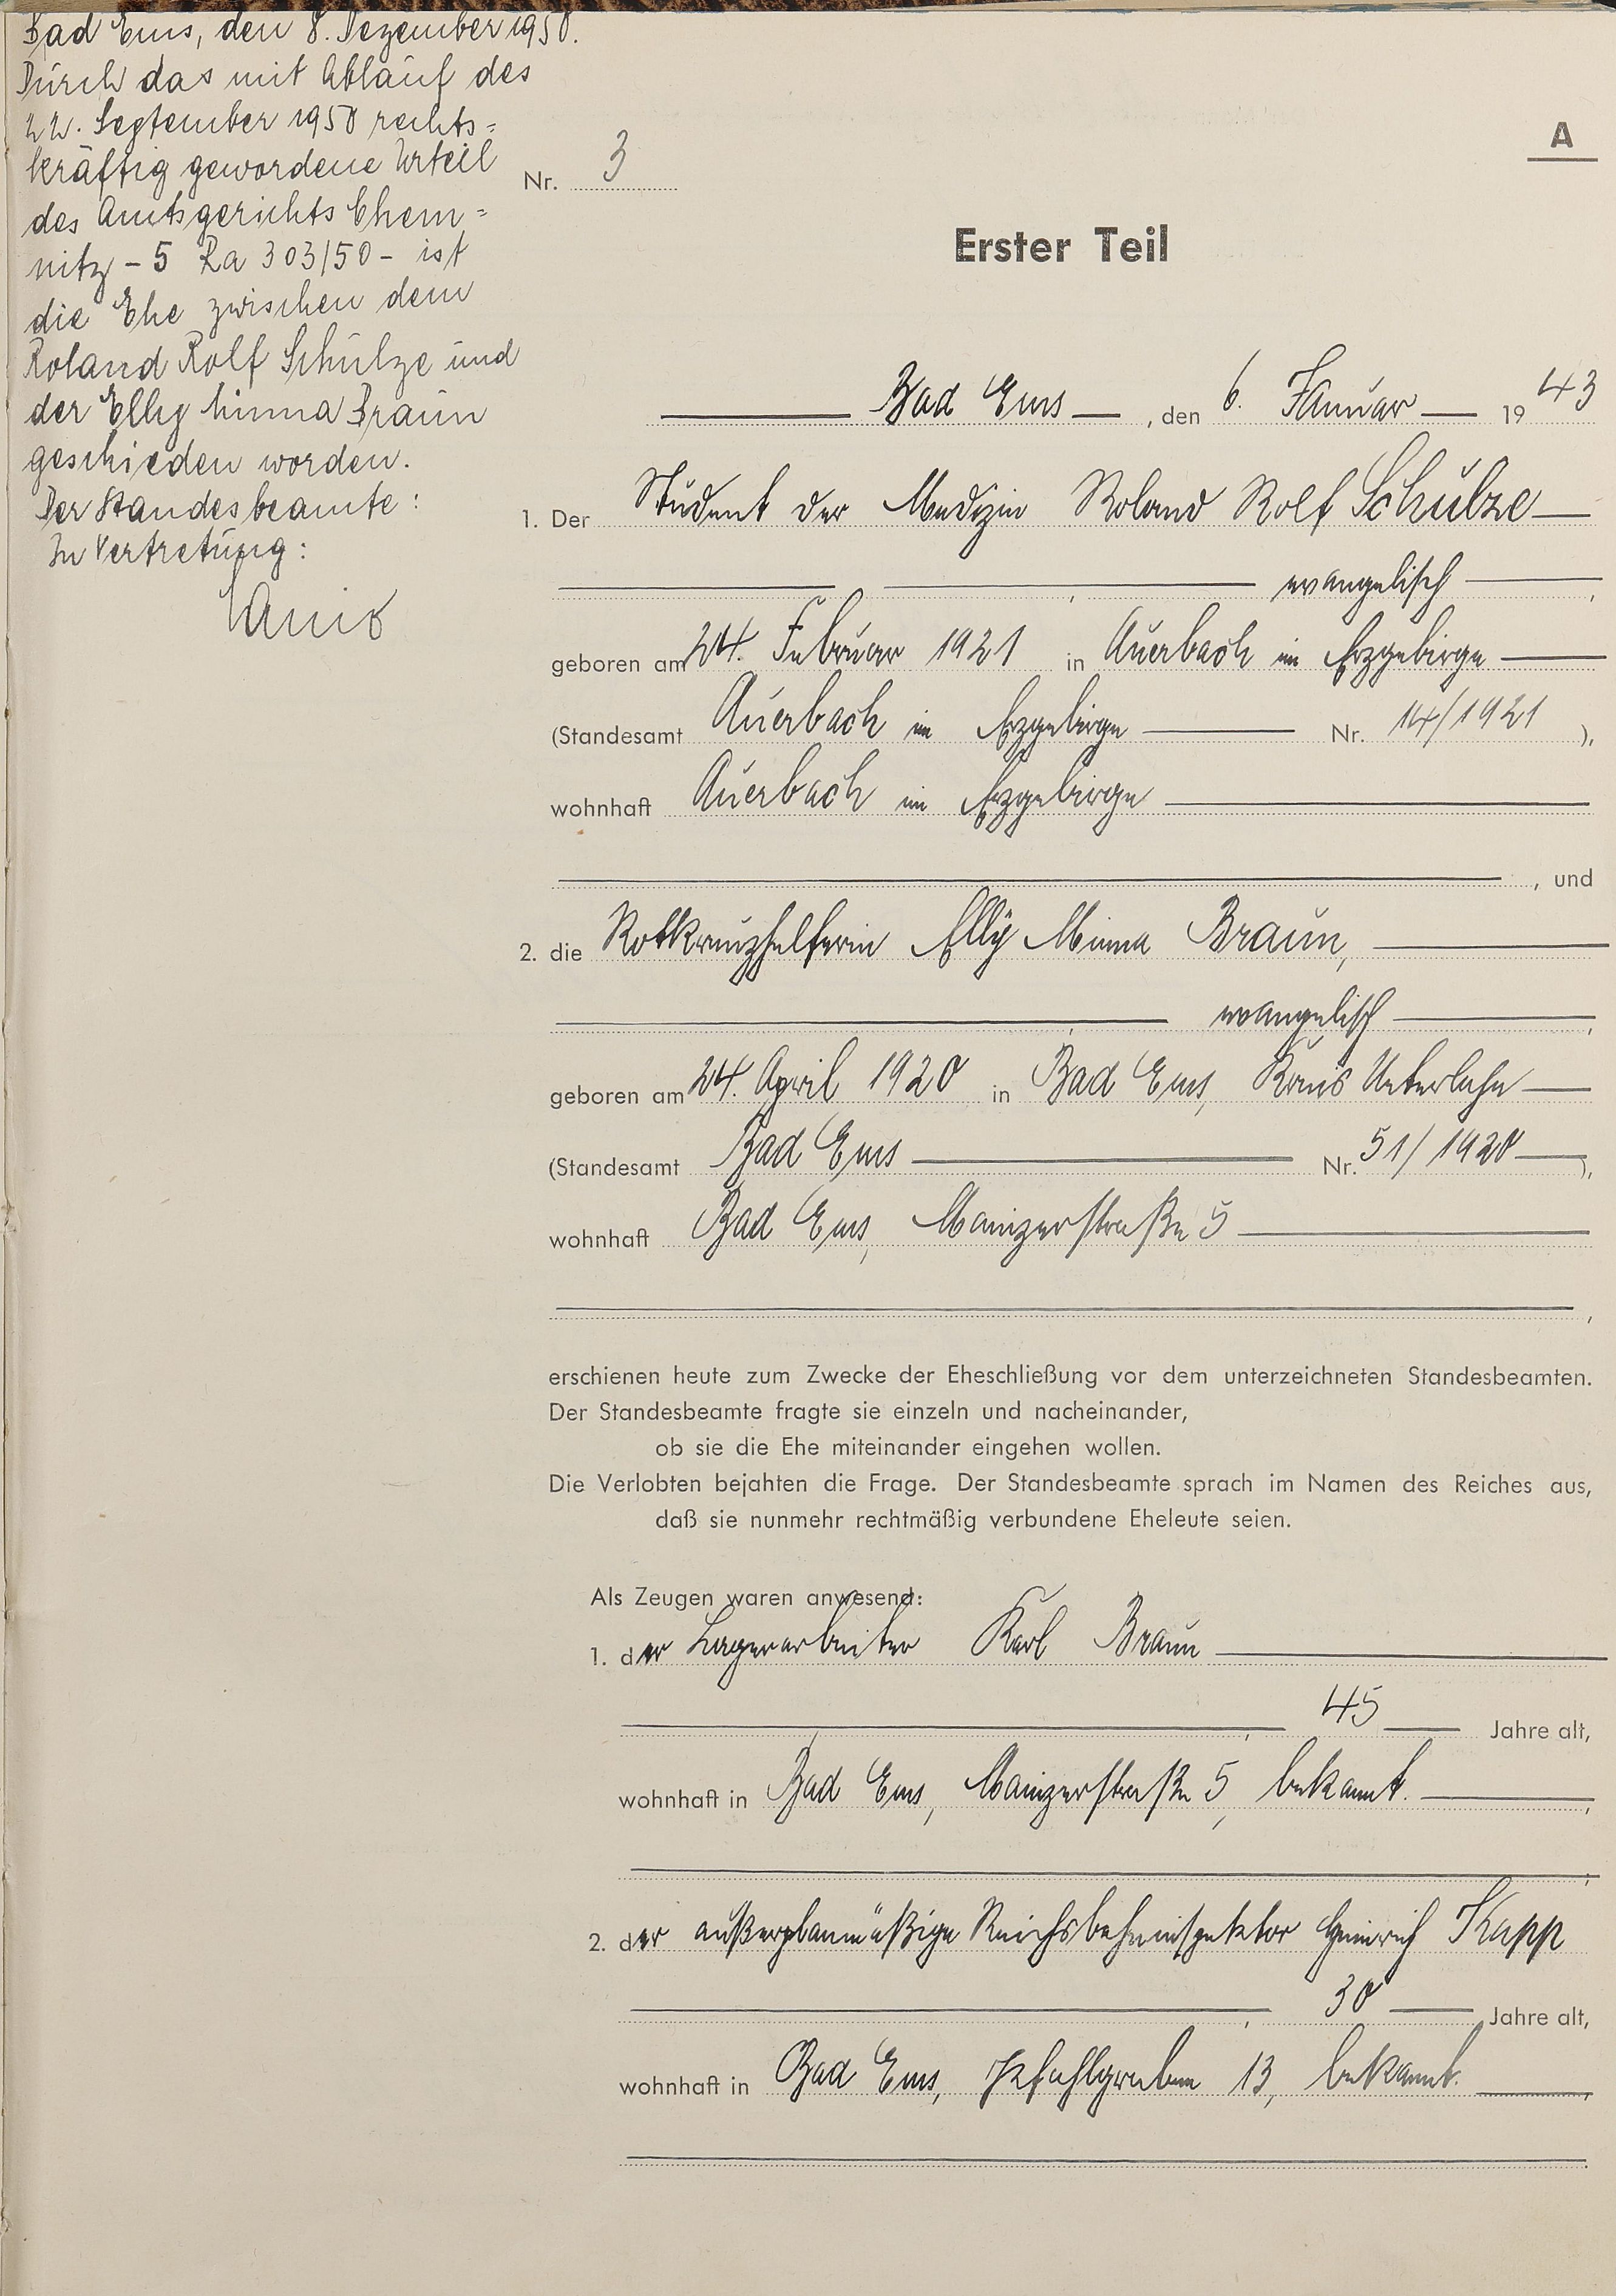 Bad Ems, den 8. Dezember 1950.
Durch das mit Ablauf des
22. September 1950 rechts=
kräftig gewordene Urteil
des Amtsgerichts Chem=
nitz – 5 Ra 303/50 – ist
die Ehe zwischen dem
Roland Rolf Schulze und
der Elly Minna Braun
geschieden worden.
Der Standesbeamte:
In Vertretung:
A
Nr. 3
Erster Teil
Bad Ems, den 6. Januar 1943
1. Der Student der Medizin Roland Rolf Schulze
, evangelisch,
geboren am 24. Februar 1921 in Auerbach im Erzgebirge
(Standesamt Auerbach im Erzgebirge Nr. 14/1921),
wohnhaft Auerbach im Erzgebirge
, und
2. die Rotkreuzhelferin Elly Minna Braun,
, evangelisch,
geboren am 24. April 1920 in Bad Ems, Kreis Unterlahn
(Standesamt Bad Ems Nr. 51/1920),
wohnhaft Bad Ems, Mainzerstraße 5
,
erschienen heute zum Zwecke der Eheschließung vor dem unterzeichneten Standesbeamten.
Der Standesbeamte fragte sie einzeln und nacheinander,
ob sie die Ehe miteinander eingehen wollen.
Die Verlobten bejahten die Frage. Der Standesbeamte sprach im Namen des Reiches aus,
daß sie nunmehr rechtmäßig verbundene Eheleute seien.
Als Zeugen waren anwesend:
1. der Lagerarbeiter Karl Braun
, 45 Jahre alt,
wohnhaft in Bad Ems, Mainzerstraße 5, bekannt.,
;
2. der außerplanmäßige Reichsbahninspektor Heinrich Kapp
, 30 Jahre alt,
wohnhaft in Bad Ems, Pfahlgraben 13, bekannt.,
.